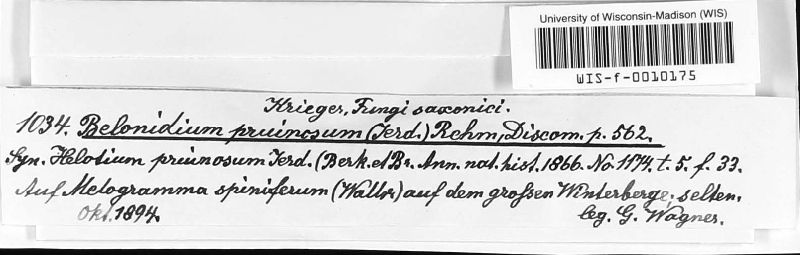 University of Wisconsin-Madison (WIS)
WIS-f-0010175
Krieger, Fungi saxonici.
1034. Belonidium pruinosum (Jerd.) Rehm, Discom. p. 562.
Syn. Helotium pruinosum Jerd. (Berk. et Br. Ann. nat. hist. 1866. No. 1174. t. 5. f. 33.
Auf Melogramma spiniferum (Wallr.) auf dem großen Winterberge, selten.
Okt. 1894. leg. G. Wagner.